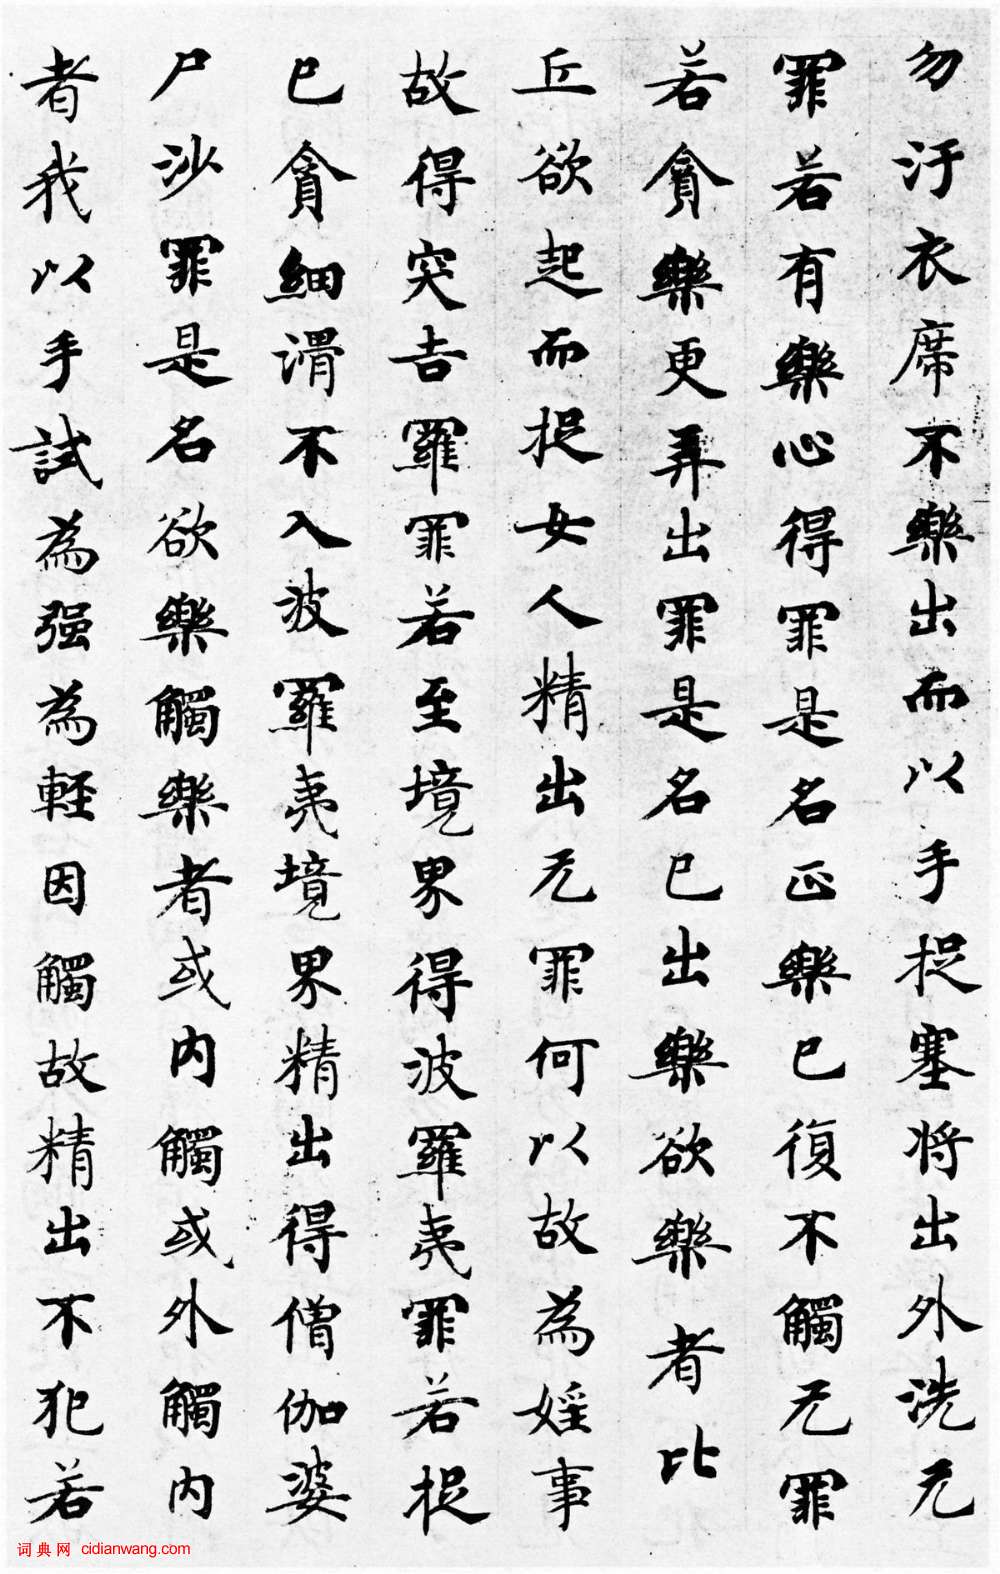 勿汙衣席不樂出而以手捉塞將出外洗无
罪若有樂心得罪是名正樂已復不觸无罪
若貪樂更弄出罪是名已出樂欲樂者比
丘欲起而捉女人精出无罪何以故為婬事
故得突吉羅罪若至境界得波羅夷罪若捉
已貪細滑不入波羅夷境界精出得僧伽婆
尸沙罪是名欲樂觸樂者或内觸或外觸内
者我以手試為强為輕因觸故精出不犯若
词典网 cidianwang.com